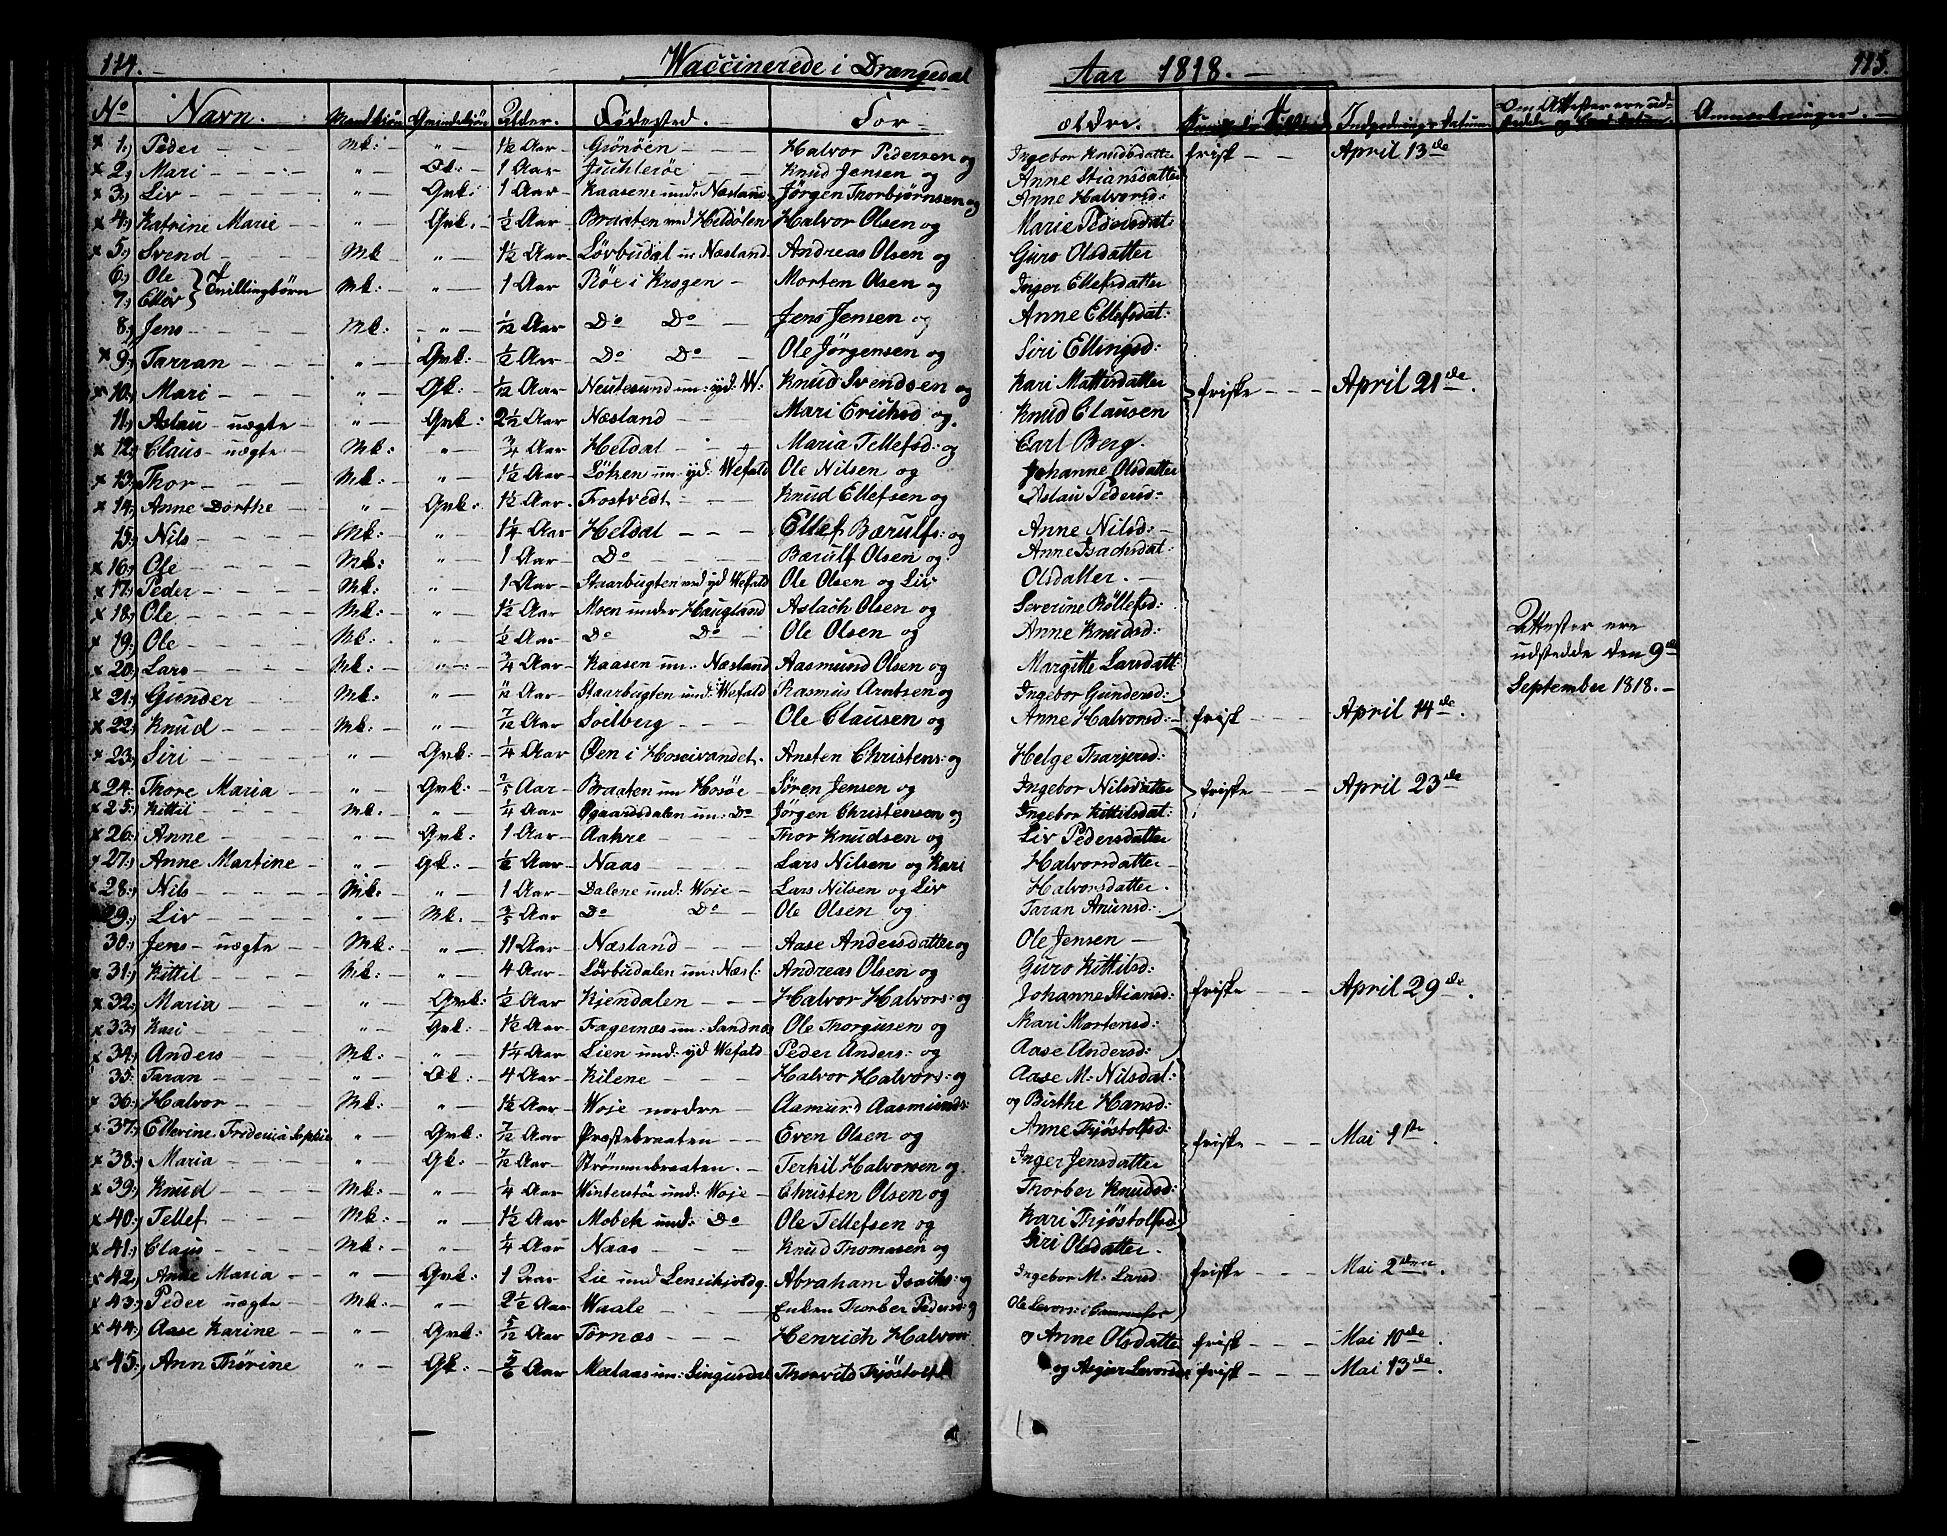 114.
Waccinerede i Drangedal Aar 1818.
115.
No Navn. Mandkjøn Qvindekjøn Alder. Födested. For- ældre. Indpodnings datum Om Attester ere ud- Anmerkninger.
1, Peder Mk: " 1½ Aar Grönöen Halvor Pedersen og Ingebor Knudsdatter frisk April 13de
2, Mari " 1 Aar Knud Jensen og Anne Stiansdatter
3, Liv " Qvk: 1 Aar Kaasene und: Næsland Jørgen Thorbjørnsen og Anne Halvorsd:
4, Katrine Marie " Qvk. ½ Aar Braaten und Heldölen Halvor Olsen og Marie Pedersdat:
5, Svend Mk " 1½ Aar Lörbudal u: Næsland Andreas Olsen og Guro Olsdatter
6, Ole } Tvillingbörn Mk: " 1 Aar Röe i Krogen Morten Olsen og Inger Ellefsdatter
7, Ellev
8, Jens Mk: " 1/12 Aar Do Do Jens Jensen og Anne Ellefsdat:
9, Tarran " Qvk: ½ Aar Do Do Ole Jörgensen og Siri Ellingsd:
10, Mari " Qk: 1/12 Aar Neutesund un: yd: W: Knud Svendsen og Kari Mattisdatter friske April 21de
11, Aslau uægte " Qvk: 2½ Aar Næsland Mari Erichsd og Knud Clausen
12, Claus uægte Mk: " ¾ Aar Heldal Maria Tellefsd: og Carl Berg.
13, Thor Mk: " 1½ Aar Löken un: yd: Wefald Ole Nilsen og Johanne Olsdatter
14, Anne Dorthe " Qvk: 1½ Aar Fostvedt Knud Ellefsen og Aslau Pedersd
15, Nils Mk: " 1¼ Aar Heldal Ellef Bærulfs: og Anne Nilsd:
16, Ole Mk: " 1 Aar Do Bærulf Olsen og Anne Isachsdat:
17, Peder Mk: " 1 Aar Staarbugten und yd Wefald Ole Olsen og Liv Olsdatter.
18, Ole Mk: " 1½ Aar Moen under Haugland Aslach Olsen og Severine Röllefsd:
19, Ole Mk: " ½ Aar Do Do Ole Olsen og Anne Knudsd: Attester ere
20, Lars Mk: " ¾ Aar Kaasen un: Næsland Aasmund Olsen og Margitte Larsdatt: udstedde den 9de
21, Gunder Mk: " Aar Staarbugten und: Wefald Rasmus Arntsen og Ingebor Gundersd: September 1818.
22, Knud Mk: " 7/12 Aar Soilberg Ole Clausen og Anne Halvorsd: frisk April 14de.
23, Siri " Qvk: ¼ Aar Öen i Hoseivandet. Ansten Christens: og Helge Tharjersd:
24. Thore Maria " Qvk: Aar Braaten un Hosöe Sören Jensen og Ingebor Nilsdatter friske April 23de
25. Kittil Mk: " ¼ Aar Ögaardsdalen un: Do Jörgen Christensen og Ingebor Kittilsdat:
26. Anne " Qvk: 1 Aar Aakre Thor Knudsen og Liv Pedersdatter
27, Anne Martine " Qk: Aar Naas Lars Nilsen og Kari Halvorsdatter
28. Nils Mk: " 1 Aar Dalene und: Woje Lars Nilsen og Liv Halvorsdatter.
29: Liv " Mk: Aar Do Do Ole Olsen og Taran Anunsd:
30: Jens uægte Mk: " 11 Aar Næsland Aase Andersdatter og Ole Jensen
31, Kittil Mk: " 4 Aar Lörbudalen un: Næsl: Andreas Olsen og Guro Kittilsd:
32, Maria " Qvk: ½ Aar Kjendalen Halvor Halvors: og Johanne Stiansd: friske April 29de.
33, Kari " Qvk: 1½ Aar Fagernæs un: Sandnæs Ole Thorgusen og Kari Mortensd:
34, Anders Mk: " 1¼ Aar Lien und: yd Wefald Peder Anders: og Aase Andersd:
35. Taran " 4 Aar Kilene Halvor Halvors: og Aase M: Nilsdat:
36, Halvor Mk: " 1½ Aar Woje nordre Aamund Aasmunds: og Birthe Hansd:
37. Ellevine Frederica Sophie " Qvk: 7/12 Aar Præstebraaten Even Olsen og Anne Thjöstolfsd: friske Mai 1ste.
38. Maria " Qk: 7/12 Aar Strömmebraaten. Terkil Halvorsen og Inger Jensdatter
39, Knud Mk: " ¼ Aar Winterstöe und: Woje Christen Olsen og Thorber Knudsd:
40. Tellef Mk: " 1½ Aar Mobek und: Do Ole Tellefsen og Kari Thjöstolfsd
41, Claus Mk: " ¼ Aar Naas Knud Thomasen og Siri Olsdatter.
42. Anne Maria " Qvk: 1 Aar Lie und Lensikjoldg. Abraham Isachs: og Ingebor M: Larsd friske Mai 2den.
43: Peder uægte Mk: " 2½ Aar Waale Enken Thorber Peders: og Ole Levors:
44. Aase Karine " Qvk: 5/12 Aar Tornæs Henrich Halvors og Anne Olsdatter frisk Mai 10de.
45. Ann Thorine " Qk: Aar Thorvild Thjöstolfs og Asgjer Levorsd frisk Mai 13de.